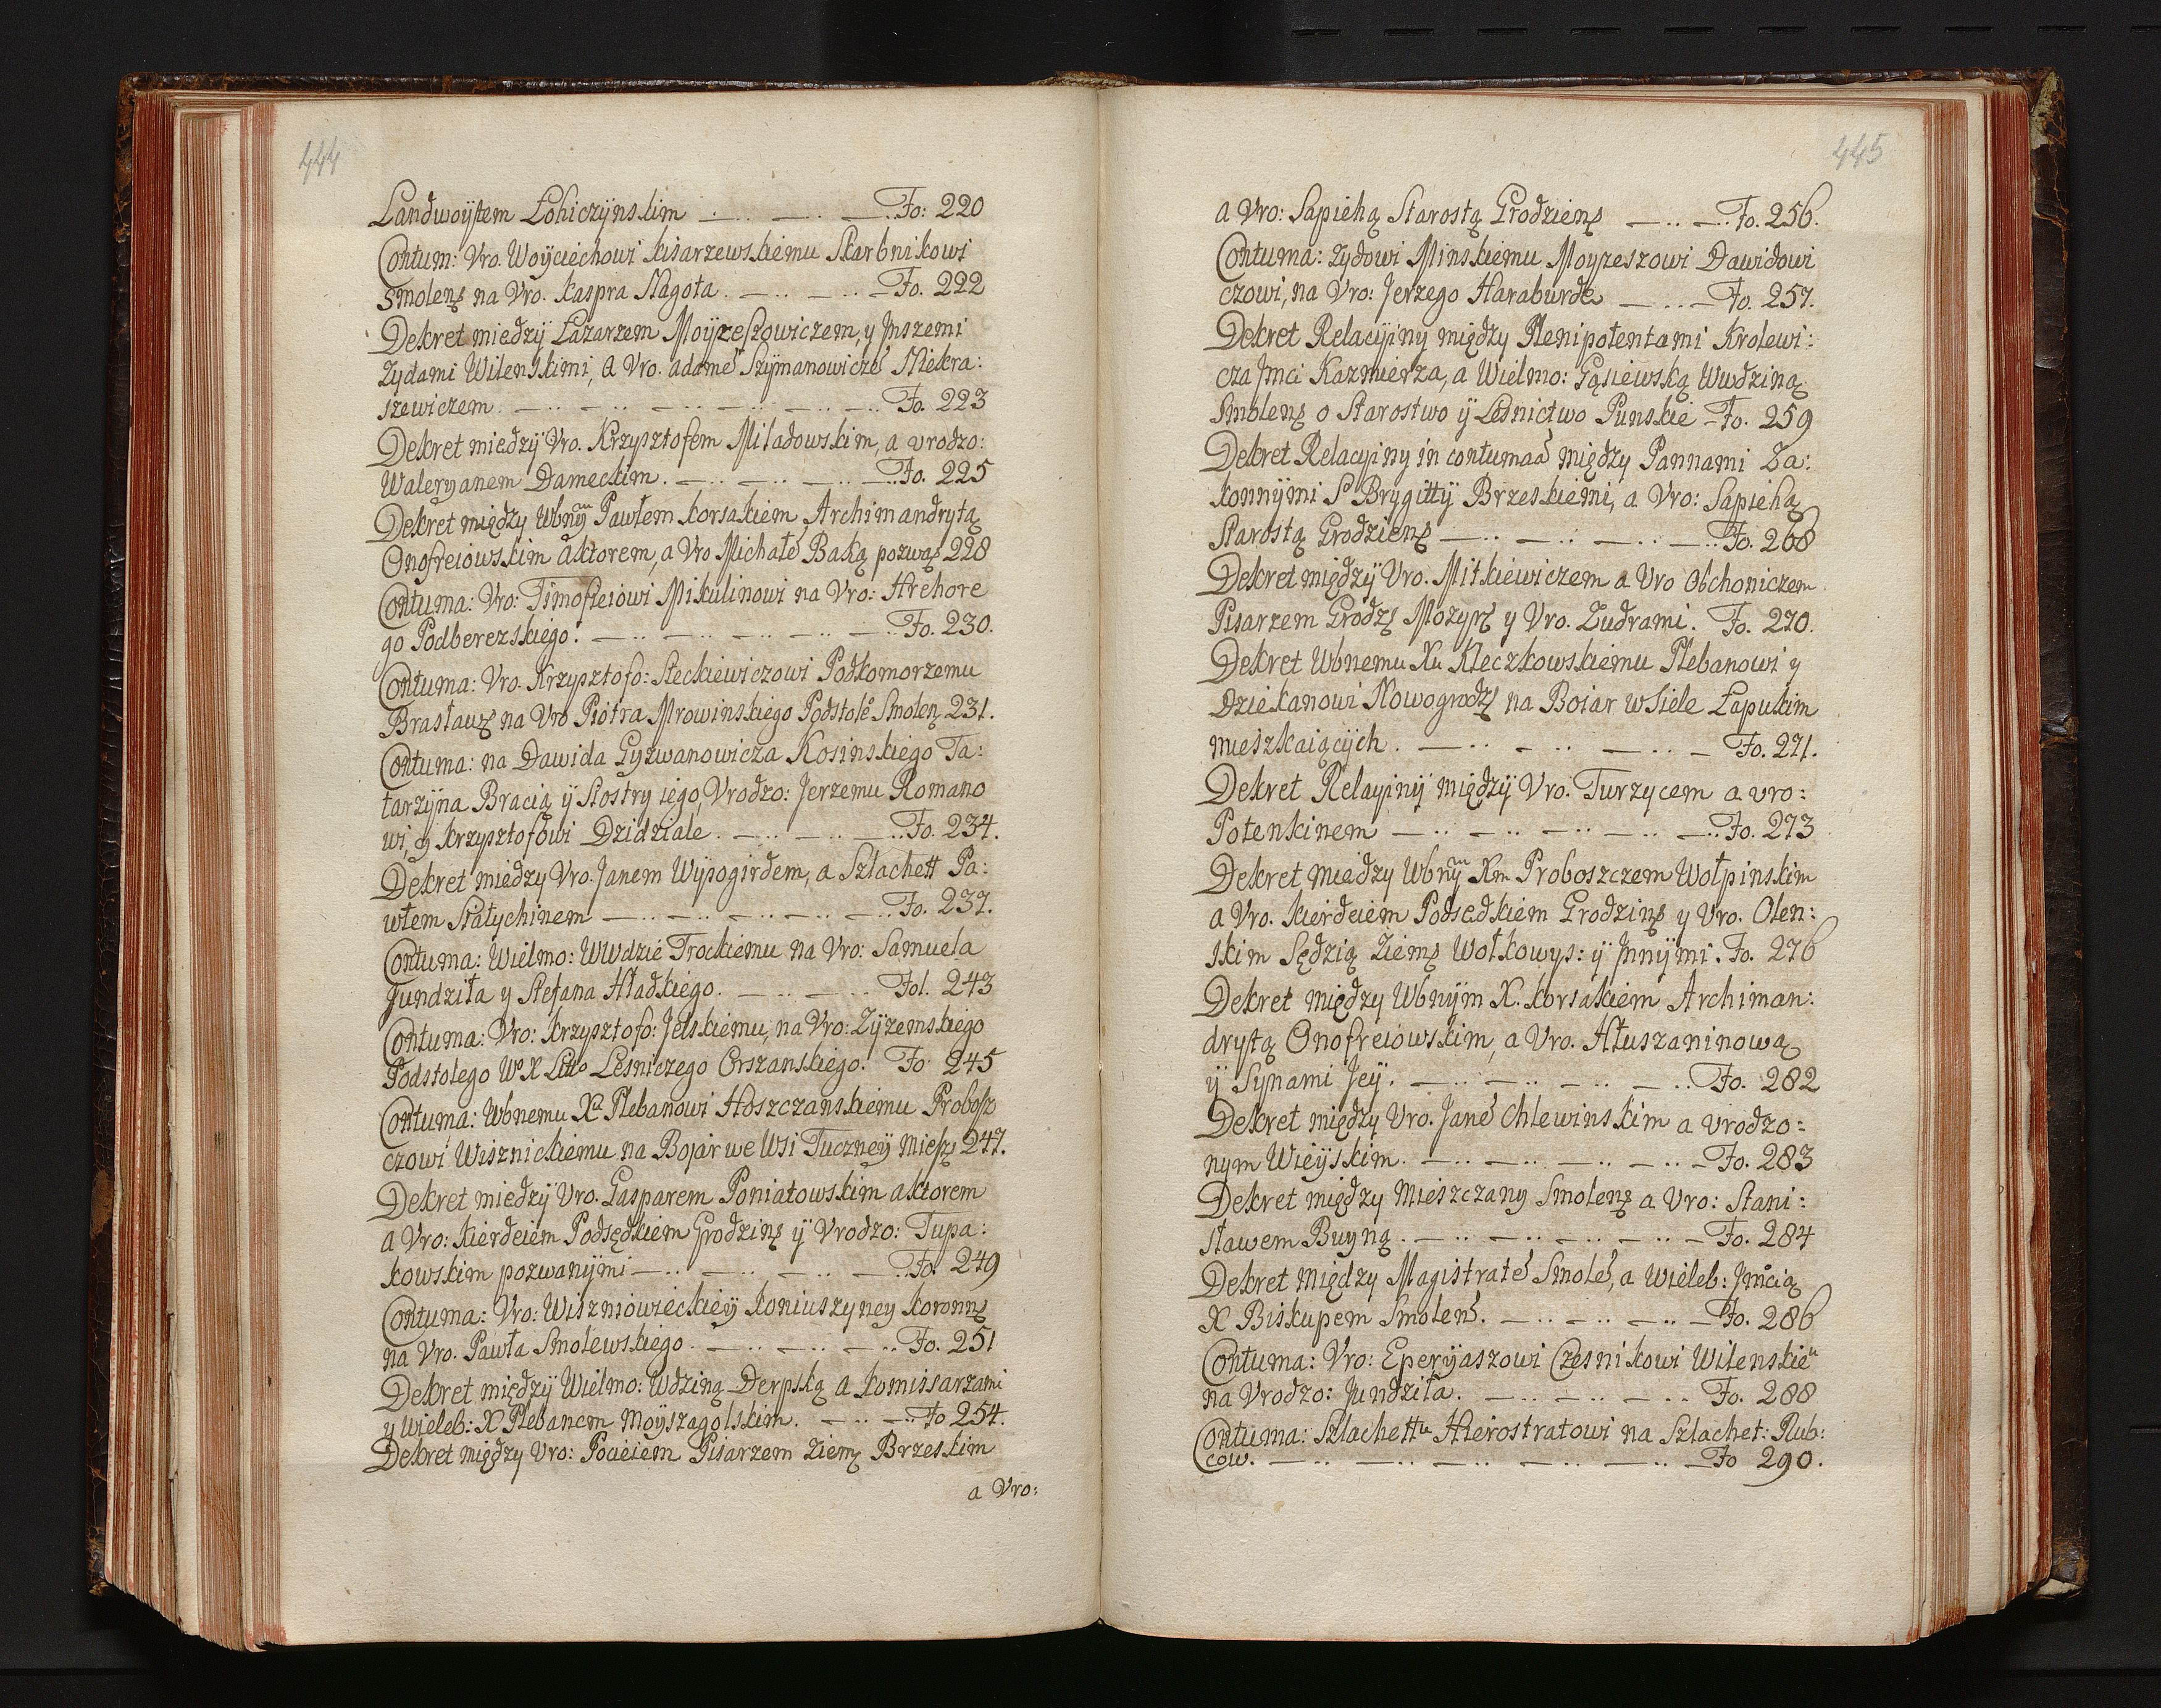 444
Landwoÿtem Łohiczÿnskim — .. — .. — .. Fo: 220
Contum: Vro. Woÿciechowi kisarzewskiemu Skarbnikowi
Smolenſ na Vro. kaspra Nagota. — .. — .. — Fo. 222
Dekret miedzÿ Łazarzem Moÿzeszowiczem, y Jnszemi
Zydami Wilenskimi, a Vro. adamē Szÿmanowiczē Niekra:
szewiczem. — .. — .. — .. — .. — .. — .. Fo. 223
Dekret miedzÿ Vro. Krzysztofem Miładowskim, a vrodzo:
Waleryanem Dameckim. — .. — .. — .. — .. Fo. 225
Dekret między Wbnyᵐ Pawłem korsakiem Archimandrytą
Onofreiowskim aktorem, a Vro Michałē Baką pozwaſ 228
Contuma: Vro: Timofieiowi Mikulinowi na Vro: Hrehore
go Podberezskiego. — .. — .. — .. — .. — .. Fo. 230.
Contuma: Vro. Krzysztofo: Steckiewiczowi Podkomorzemu
Brasławſ na Vro Piotra Mrowinskiego Podstolē Smolenſ 231.
Contuma: na Dawida Gyzwanowicza Kosinskiego Ta:
tarzÿna Bracią ÿ Siostry iego, Vrodzo: Jerzemu Romano
wi, y krzysztofowi Dzidziale. — .. — .. — .. Fo. 234.
Dekret miedzy Vro. Janem Wÿsogirdem, a Szlachett Pa:
włem Stałychinem — .. — .. — .. — .. — .. Fo. 237.
Contuma: Wielmo: WWdzie Trockiemu na Vro: Samuela
Jundziła y Stefana Hładkiego. — .. — .. Fol. 243
Contuma: Vro: krzysztofo: Jelskiemu, na Vro: Zÿzemskiego
Podstolego Wᵒ X Littᵒ Lesniczego Orszanskiego. Fo 245
Contuma: Wbnemu Xᵘ Plebanowi Hoszczanskiemu Probosz
czowi Wisznickiemu na Bojar we Wsi Tuczneÿ mieſz 247.
Dekret miedzÿ Vro. Gasparem Poniatowskim aktorem
a Vro: kierdeiem Podsędkiem Grodzinſ ÿ Vrodzo: Tupa:
kowskim pozwanÿmi — .. — .. — .. — .. Fo. 249
Contuma: Vro: Wiszniowieckieÿ koniuszyney koronnſ
na Vro. Pawła Smolewskiego. — .. — .. — .. Fo. 251
Dekret międzÿ Wielmo: Wdziną Derpską a komissarzami
y Wieleb: X Plebanem Moÿszagolskim. — .. — .. Fo 254.
Dekret między Vro: Pocieiem Pisarzem Ziemſ Brzeskim
a Vro:
445
a Vro: Sapiehą Starostą Grodzienſ — .. — .. Fo. 256.
Contuma: Zydowi Minskiemu Moyzeszowi Dawidowi
czowi, na Vro: Jerzego Haraburde — .. — Fo. 257.
Dekret Relacyiny między Plenipotentami Krolewi:
cza Jmci Kazmierza, a Wielmo: Gąsiewską Wwdziną
Smolenſ o Starostwo ÿ Lesnictwo Punskie – Fo. 259
Dekret Relacyiny in contumaā między Pannami Za:
konnÿmi Sᵒ Brygittÿ Brzeskiemi, a Vro: Sapiehą
Starostą Grodzienſ — .. — .. — .. — .. Fo. 268
Dekret międzÿ Vro. Mitkiewiczem a Vro Obchoniczem
Pisarzem Grodzſ Mozyrſ y Vro. Zudrami. Fo. 270.
Dekret Wbnemu Xᵘ Kleczkowskiemu Plebanowi y
Dziekanowi Nowogrodſ na Boiar w Siele Łapukim
mieszkaiącÿch. — .. — .. — .. — Fo. 271.
Dekret Relayinÿ międzÿ Vro. Turzycem a vro:
Potenkinem — .. — .. — .. — .. — .. Fo. 273
Dekret miedzy Wbnyᵐ Xm Proboszczem Wołpinskim
a Vro. kierdeiem Podsędkiem Grodzinſ y Vro. Olen:
skim Sędzią Ziemſ Wołkowys: ÿ Jnnÿmi. Fo. 276
Dekret między Wbnÿm X. korsakiem Archiman:
drytą Onofreiowskim, a Vro. Hłuszaninową
ÿ Synami Jeÿ. — .. — .. — .. — .. Fo. 282
Dekret między Vro. Janē Chlewinskim a vrodzo:
nym Wieÿskim. — .. — .. — .. — .. — Fo. 283
Dekret między Mieszczany Smolenſ a Vro: Stani:
sławem Buyną. — .. — .. — .. — .. — Fo. 284
Dekret między Magistratē Smolē, a Wieleb: Jmścią
X Biskupem Smolenˢ. — .. — .. — .. — Fo. 286
Contuma: Vro: Eperÿaszowi Czesnikowi Wilenskieᵘ
na Vrodzo: Jundziła. — .. — .. — .. Fo. 288
Contuma: Szlachettᵘ Hierostratowi na Szlachet: Rub:
cow. — .. — .. — .. — .. — .. — Fo 290.